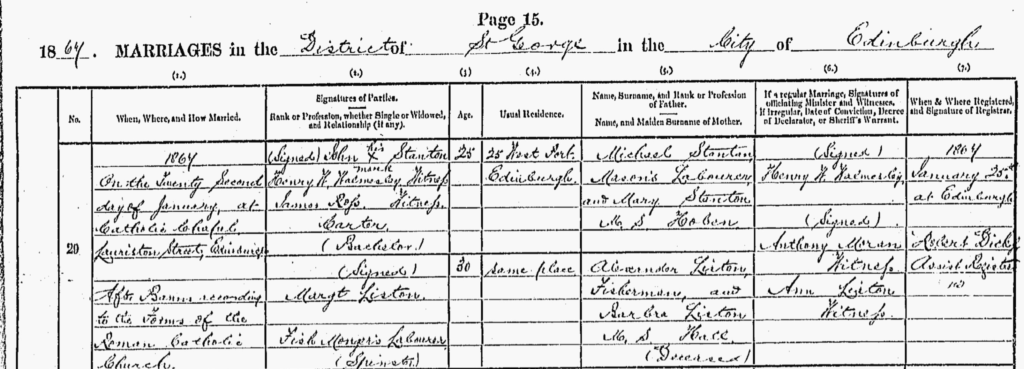 Page 15.
1864. MARRIAGES in the District of St George in the City of Edinburgh
(1.) (2.) (3.) (4.) (5.) (6.) (7.)
No.
When, Where, and How Married.
Signatures of Parties.
Rank or Profession, whether Single or Widowed, and Relationship (if any).
Age.
Usual Residence.
Name, Surname, and Rank or Profession of Father.
Name, and Maiden Surname of Mother.
If a regular Marriage, Signatures of officiating Minister and Witnesses.
If irregular, Date of Conviction, Decree of Declarator, or Sheriff's Warrant.
When & Where Registered, and Signature of Registrar.
20
1864
On the Twenty Second
day of January, at
Catholic Chapel
Lauriston Street, Edinburgh
After Banns according
to the Forms of the
Roman Catholic
Church.
(Signed) John his X mark Stanton
Henry W. Walmesley, Witness
James Ross. Witness.
Carter
(Bachelor)
(Signed)
Margt Liston.
Fish Monger's Labourer
(Spinster)
25
30
25 West Port.
Edinburgh.
same place
Michael Stanton
Mason's Labourer,
and Mary Stanton
M. S. Hoben
Alexander Liston,
Fisherman, and
Barbra Liston
M. S. Hall
(Deceased)
(Signed)
Henry W. Walmesley,
(Signed)
Anthony Moran
Witness
Ann Liston
Witness.
1864
January 25th
at Edinburgh
Robert Dick,
Assist Registrar